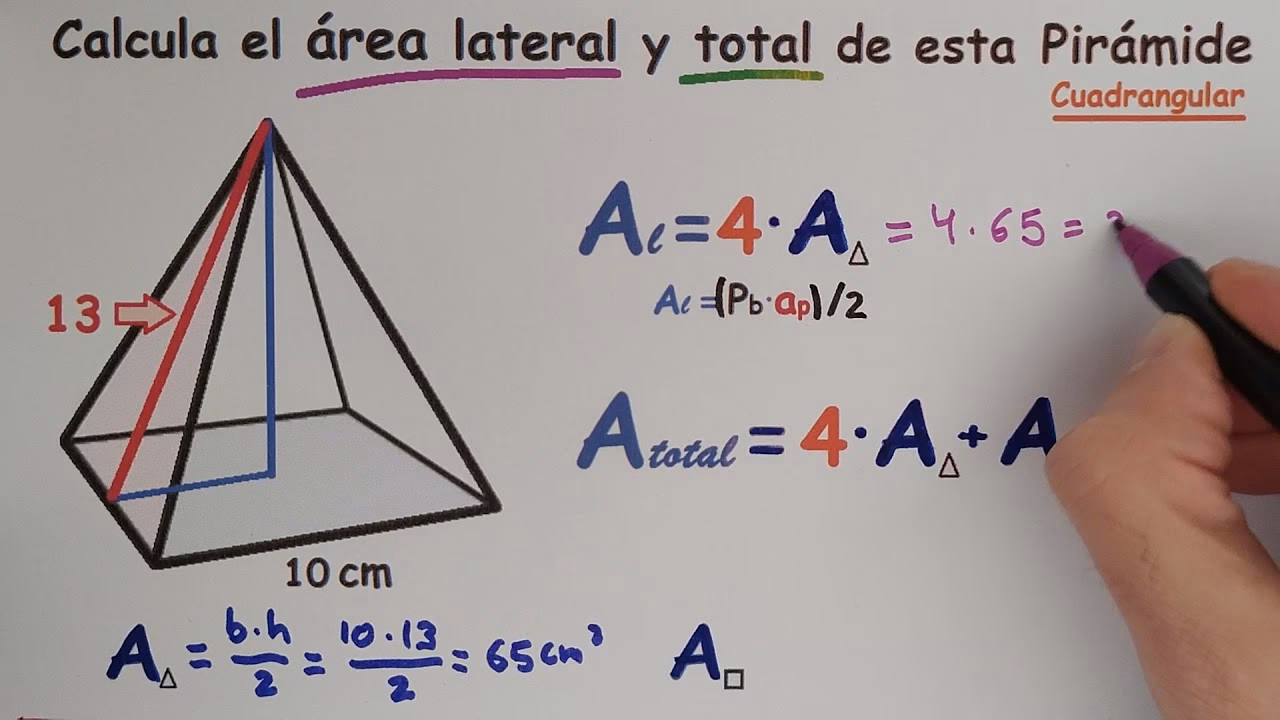 Calcula el área lateral y total de esta Pirámide
Cuadrangular
Aℓ = 4 · A△ = 4 · 65 =
13
Aℓ = (Pb · ap)/2
Atotal = 4 · A△ + A
10 cm
A△ = b·h/2 = 10·13/2 = 65 cm²
A□